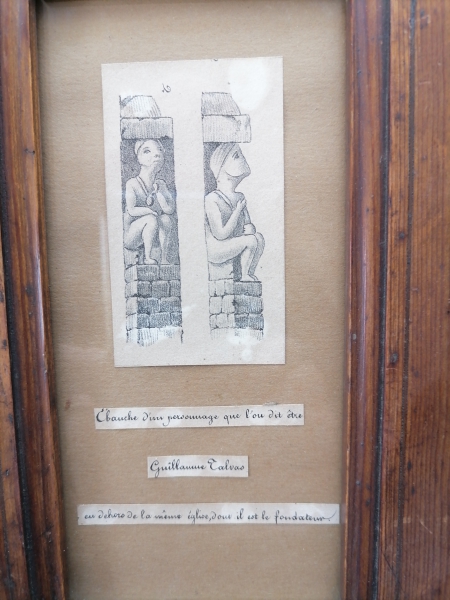 Ebauche d'un personnage que l'on dit être
Guillaume Talvas
en dehors de la même église, dont il est le fondateur